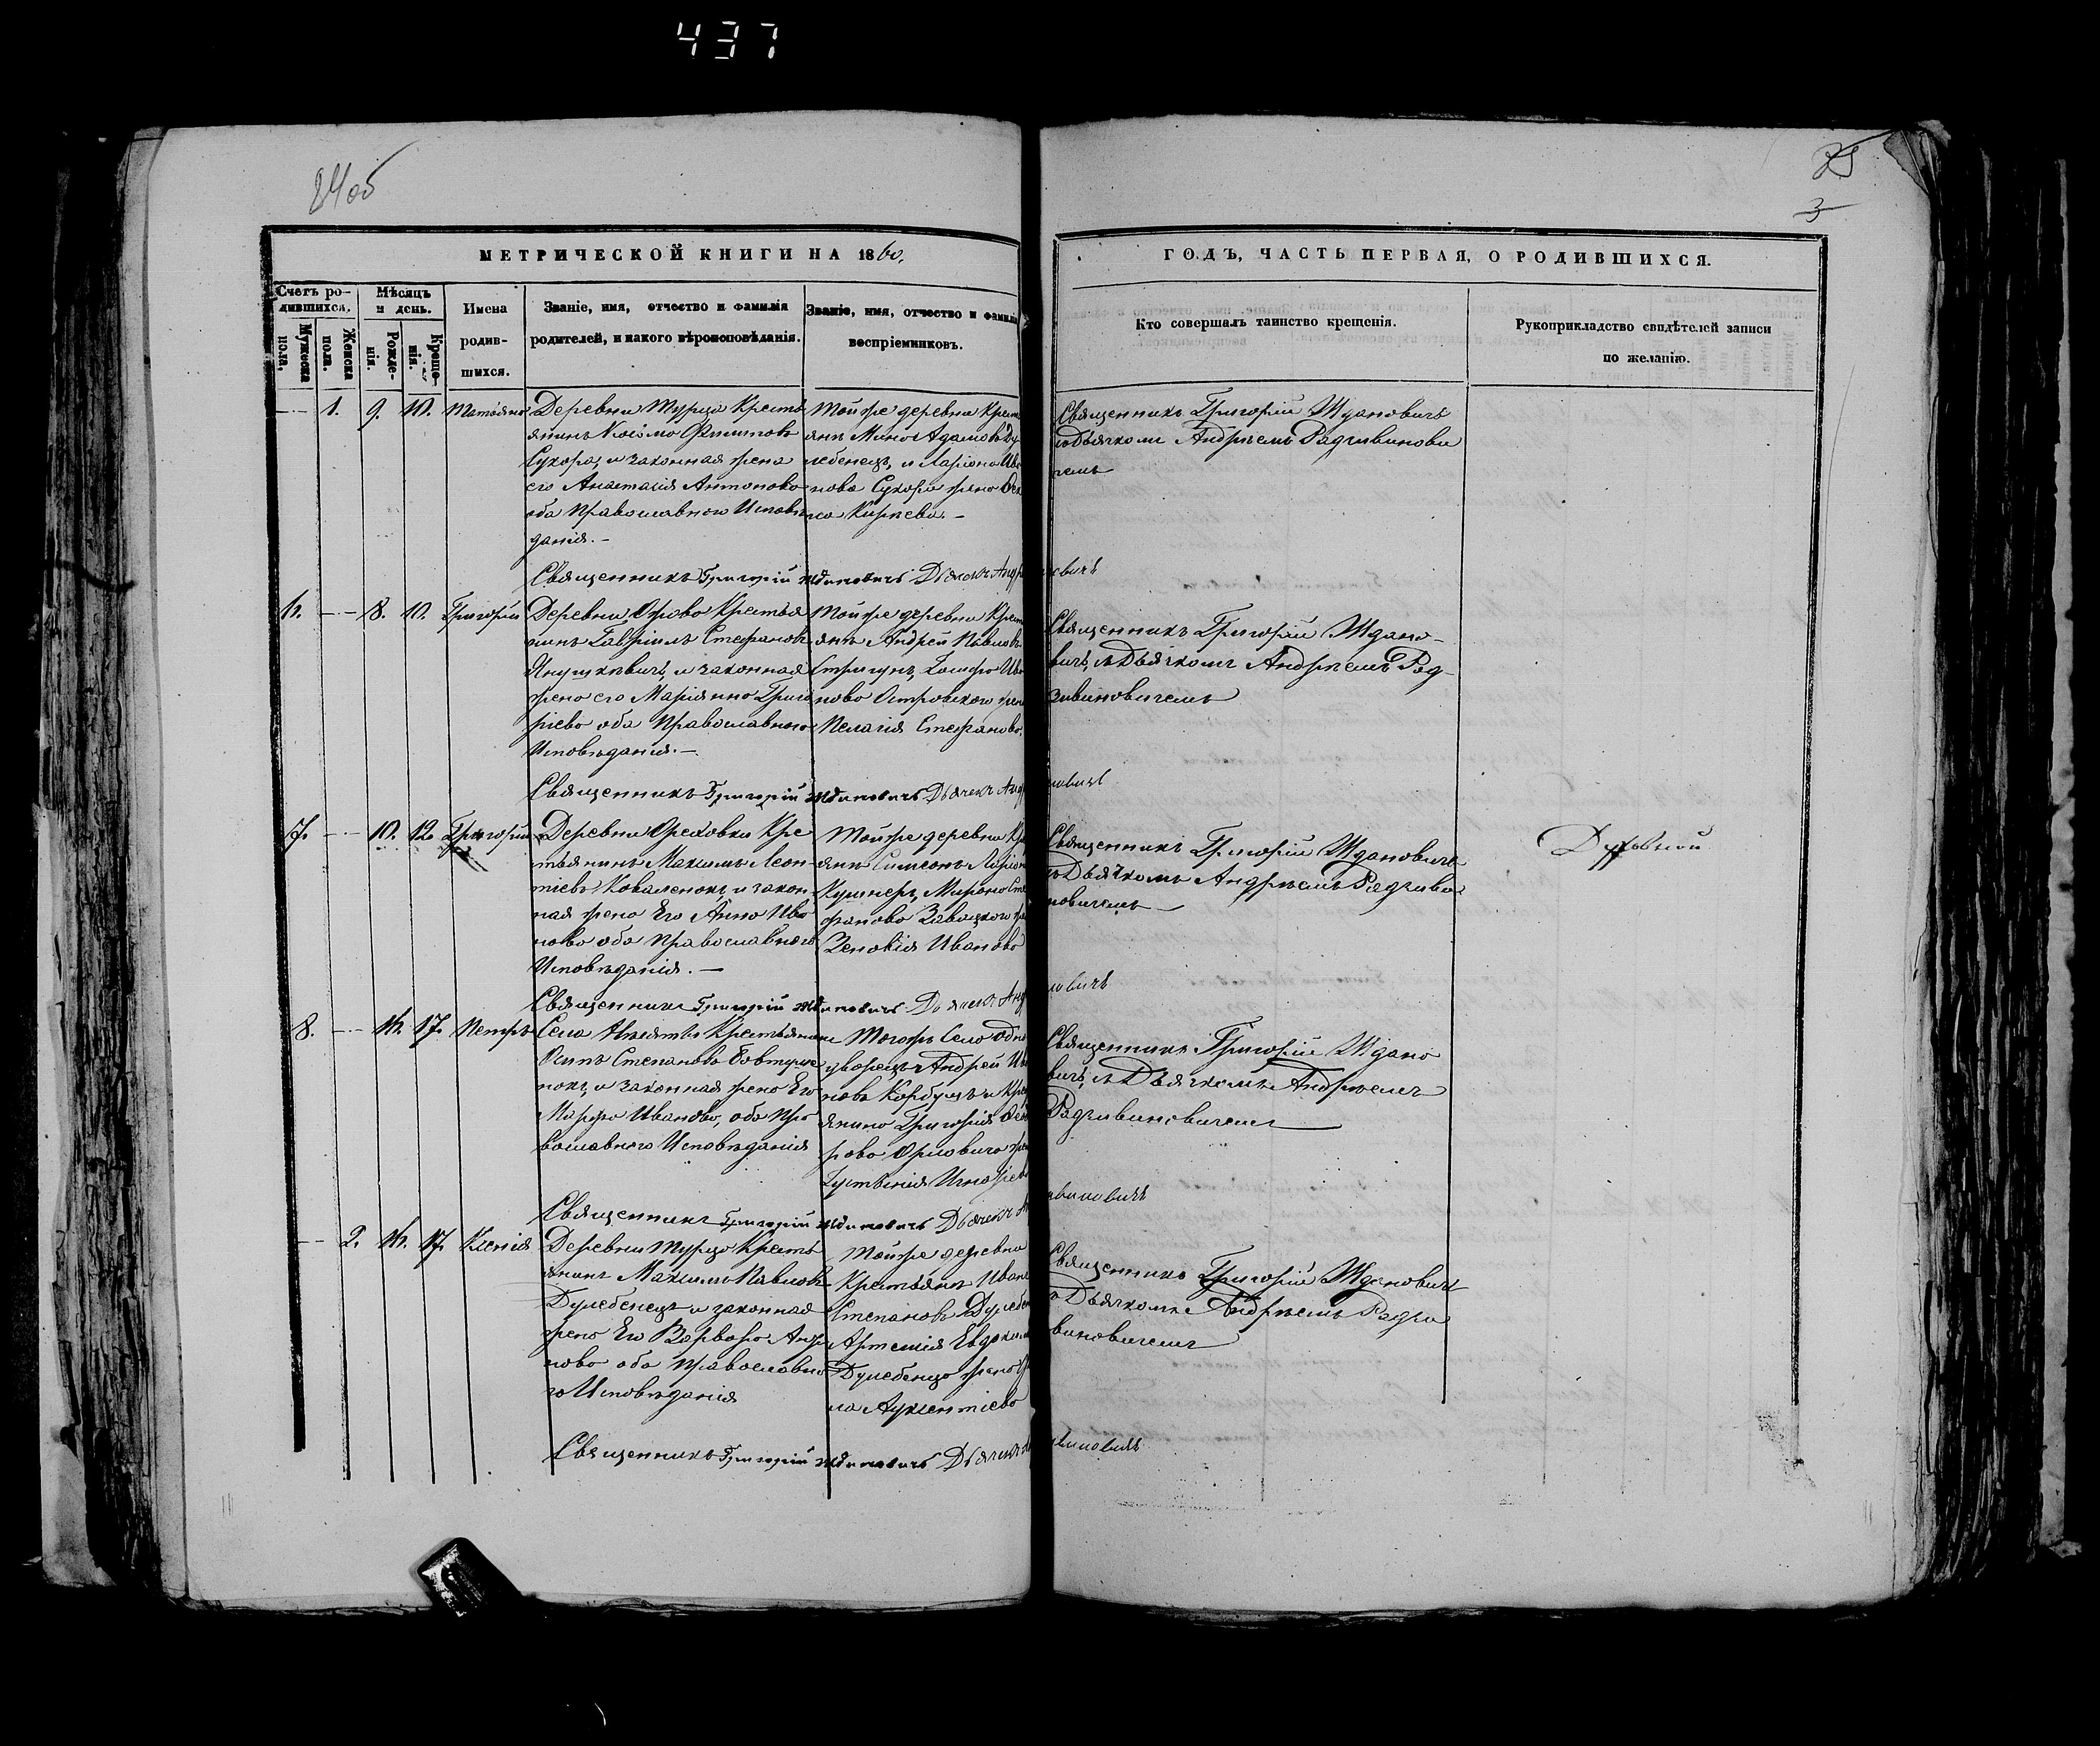 437
84об
25
3
МЕТРИЧЕСКОЙ КНИГИ НА 1860.
ГОДЪ, ЧАСТЬ ПЕРВАЯ, О РОДИВШИХСЯ.
Счетъ ро-
дившихся.
Мужеска
пола.
Женска
пола.
Мѣсяцъ
и день.
Рожде-
нія.
Креще-
нія.
Имена
родив-
шихся.
Званіе, имя, отчество и фамилія
родителей, и какого вѣроисповѣданія.
Званіе, имя, отчество и фамилія
воспріемниковъ.
Кто совершалъ таинство крещенія.
Рукоприкладство свидѣтелей записи
по желанію.
1. 9. 10. Татіяна
Деревни Турца Кресть
янинъ Филиповъ
Сухора, и законная жена
его Анастасія Антонова
оба Православнаго Исповѣ
данія.-
Тойже деревни Крест
янъ Мина Адамовъ Ду
лебенецъ, и Ларіона Ива
нова Сухори жена
Карпева.-
Священникъ Григорій Ждановичъ
съ Дьячкомъ Андреемъ Радзивинови
чемъ
Священникъ Григорій Ждановичъ Дьячекъ Анд
новичъ
6. 8. 10. Григорій
Деревни Орѣхово Крестья
нинъ Гавріилъ Стефановъ
Янушкевичъ, и законная
жена его Маріянна Григо
ріева оба Православнаго
Исповѣданія.-
Тойже деревни Крест
янъ Андрей Павловъ
Стригунъ, Іосифа Ива
нова Островского жена
Пелагія Стефанова.
Священникъ Григорій Ждано-
вичъ, съ Дьячкомъ Андреемъ Рад-
зивиновичемъ
Священникъ Григорій Ждановичъ Дьячекъ Анд
новичъ
7. 10. 12. Григорій
Деревни Ореховки Кре
стьянинъ Максимъ Леон-
тіевъ Коваленокъ, и закон
ная жена Его Анна Ива
нова оба православнаго
Исповѣданія.-
Тойже деревни Кр
янъ Симеонъ Ларіон
Кушнеръ, Мирона Сте
фанова Завацкого ж
Зеновія Иванова
Священникъ Григорій Ждановичъ
съ Дьячкомъ Андреемъ Радзиви
новичемъ
Духовный
Священникъ Григорій Ждановичъ Дьячекъ Анд
новичъ
8. 16. 17. Петръ
Села Крестьянинъ
Осипъ Степановъ
нокъ, и законная жена Его
Марфа Иванова, оба Пра
вославнаго Исповѣданія
Тогожъ Села Одно
дворецъ Андрей Ива
новъ Корбутъ и Крест
янина Григорія
рова Орловича жена
Іустинія Игнатіева
Священникъ Григорій Ждано
вичъ, съ Дьячкомъ Андреемъ
Радзивиновичемъ
Священникъ Григорій Ждановичъ Дьячекъ А
виновичъ
2. 16. 17. Ксенія
Деревни Турца Кресть
янинъ Максимъ Павловъ
Дулебенецъ и законная
жена Его Варвара
нова оба православна
го Исповѣданія
Тойже деревни
Крестьянъ Иванъ
Степановъ Дулебен
Артемія Евдоким
Дулебенца жена
Аукентіева
Священникъ Григорій Ждановичъ
съ Дьячкомъ Андреемъ Радзи
виновичемъ
Священникъ Григорій Ждановичъ Дьячекъ
виновичъ